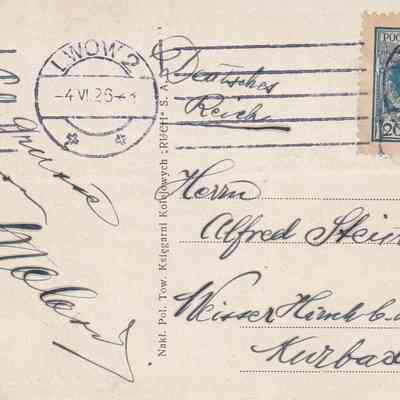 LWOW 2
-4.VI.26-
Deutsches
Reich
POCZ
20
Herrn
Alfred Stein
Weisser Hirsch b.
Kurbad
Nakł. Pol. Tow. Księgarni Kolejowych „RUCH" S. A.